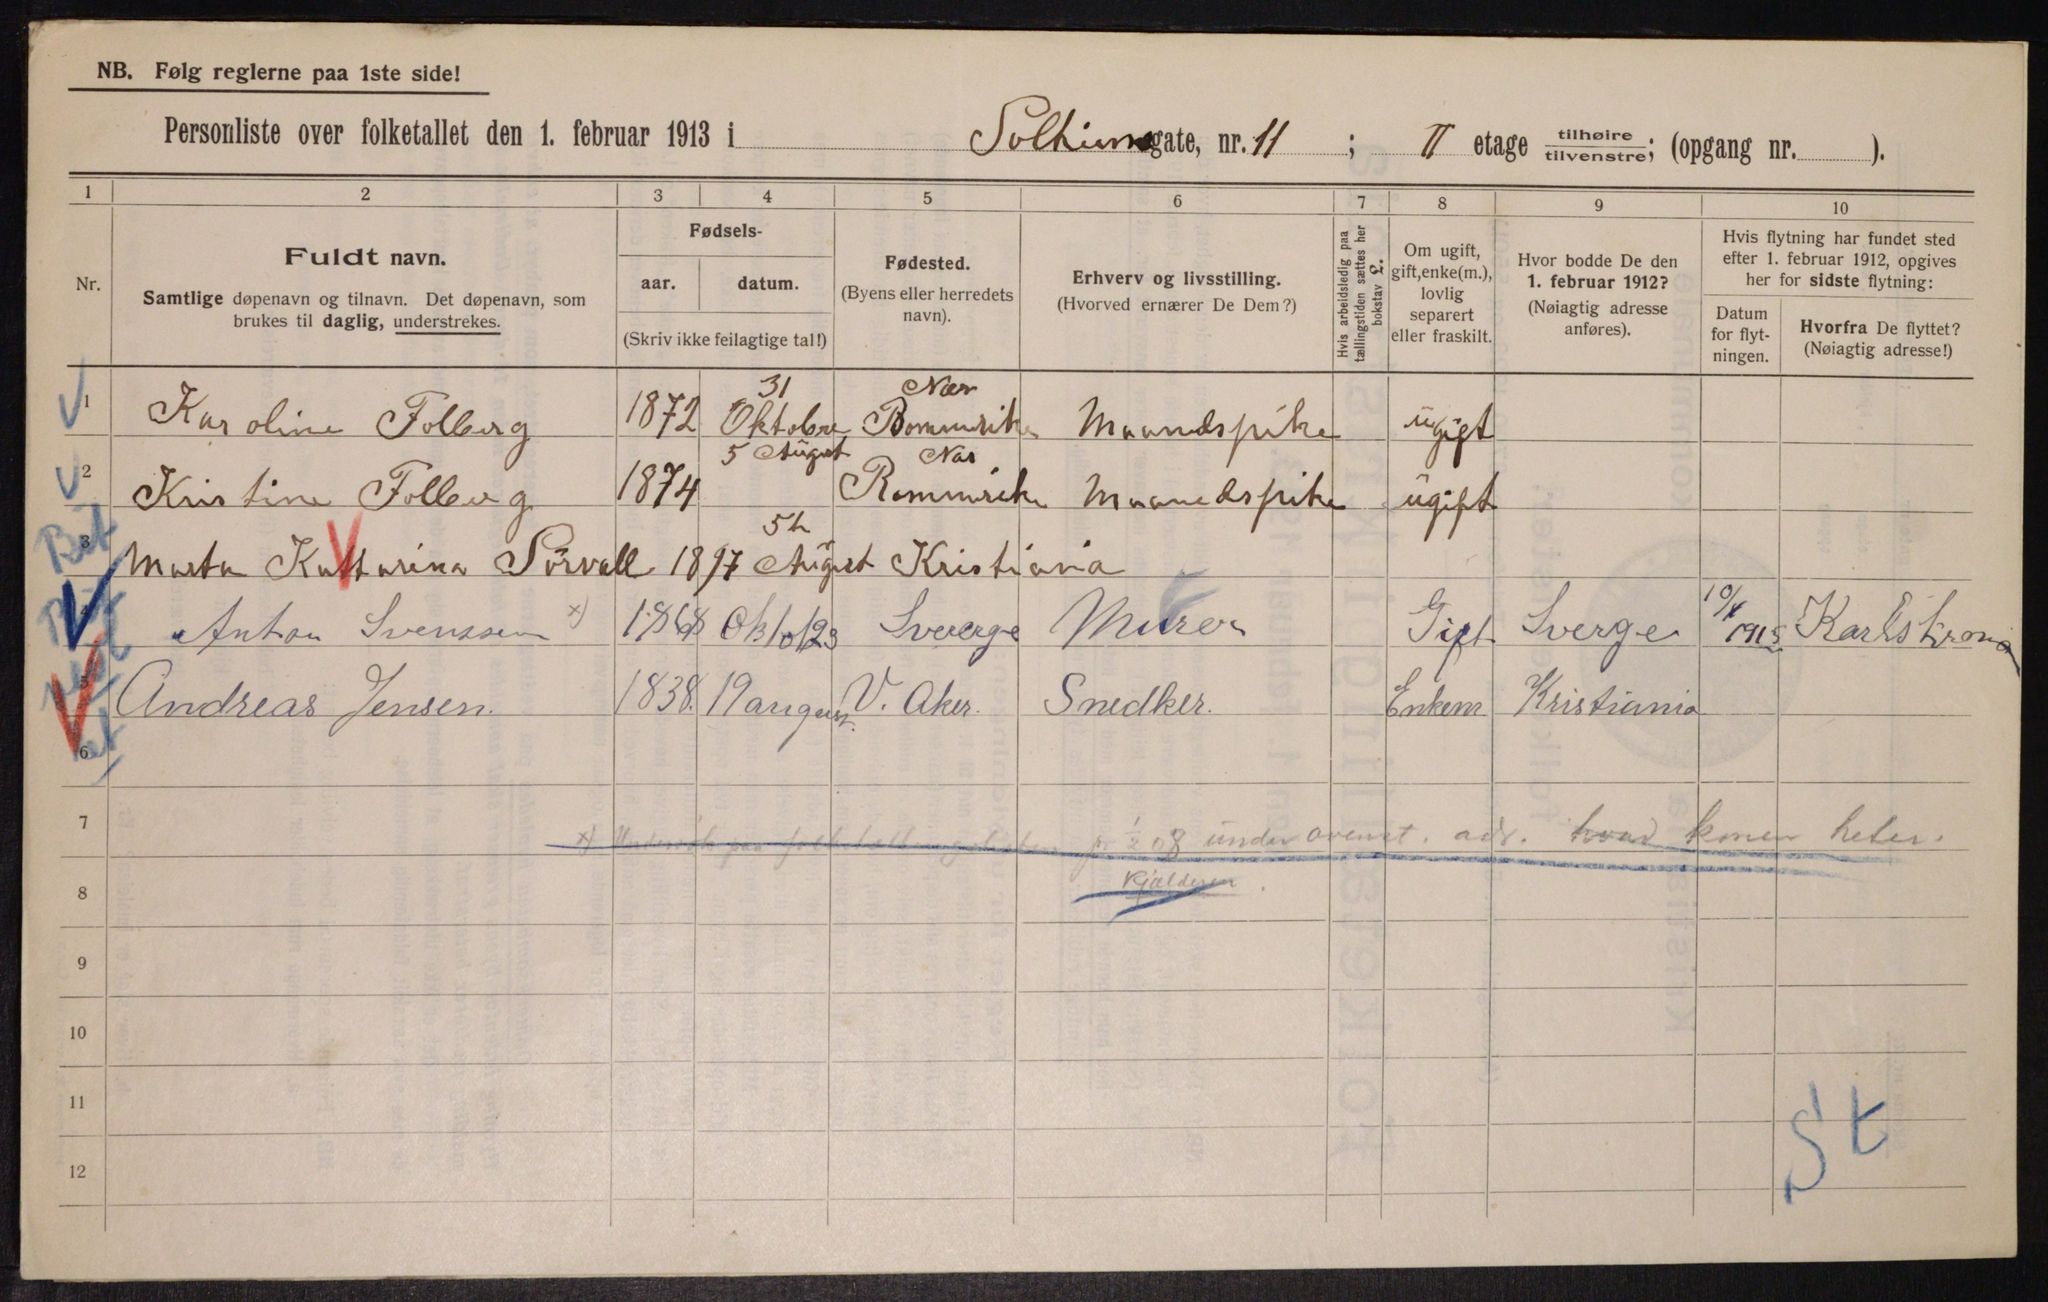 NB. Følg reglerne paa 1ste side!
Personliste over folketallet den 1. februar 1913 i Solheimsgate, nr. 11 ; II etage tilhøire/tilvenstre; (opgang nr. ).
1 2 3 4 5 6 7 8 9 10
Nr.
Fuldt navn.
Samtlige døpenavn og tilnavn. Det døpenavn, som
brukes til daglig, understrekes.
Fødsels-
aar. datum.
(Skriv ikke feilagtige tal!)
Fødested.
(Byens eller herredets
navn).
Erhverv og livsstilling.
(Hvorved ernærer De Dem?)
Hvis arbeidsledig paa
tællingstiden sættes her
bokstav L.
Om ugift,
gift, enke(m.),
lovlig
separert
eller fraskilt.
Hvor bodde De den
1. februar 1912?
(Nøiagtig adresse
anføres).
Hvis flytning har fundet sted
efter 1. februar 1912, opgives
her for sidste flytning:
Datum
for flyt-
ningen.
Hvorfra De flyttet?
(Nøiagtig adresse!)
1 Karoline Folberg 1872 31 Oktobre Nær Rommerike Maandspike ugift
2 Kristine Folberg 1874 5 August Nær Rommerike Maanedspike ugift
3 Marta Kattarina Sörvall 1897 5th August Kristiania
4 Anton Svenssen x) 1868 Okto 23 Sverge Murer Gift Sverge 10/ 1912 Karlskrona
5 Andreas Jensen 1838. 19 august V. Aker. Snedker. Enkem Kristiania
6
7 x) Undersøk paa folketællingslisten pr 1/2 08 under ovenst. adr. hvad konen heter.
8 Kjælderen.
9
10
11
12
St